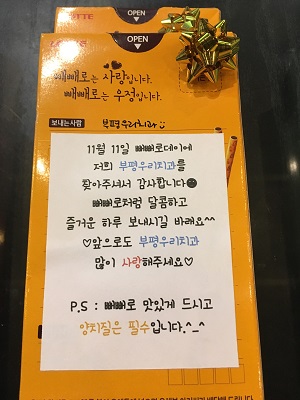 OPEN
LOTTE
OPEN
빼빼로는 사랑입니다.
빼빼로는 우정입니다.
보내는사람
부평우리치과
11월 11일 빼빼로데이에
저희 부평우리치과를
찾아주셔서 감사합니다
빼빼로처럼 달콤하고
즐거운 하루 보내시길 바래요^^
♡앞으로도 부평우리치과
많이 사랑해주세요♡
P.S : 빼빼로 맛있게 드시고
양치질은 필수입니다.^_^